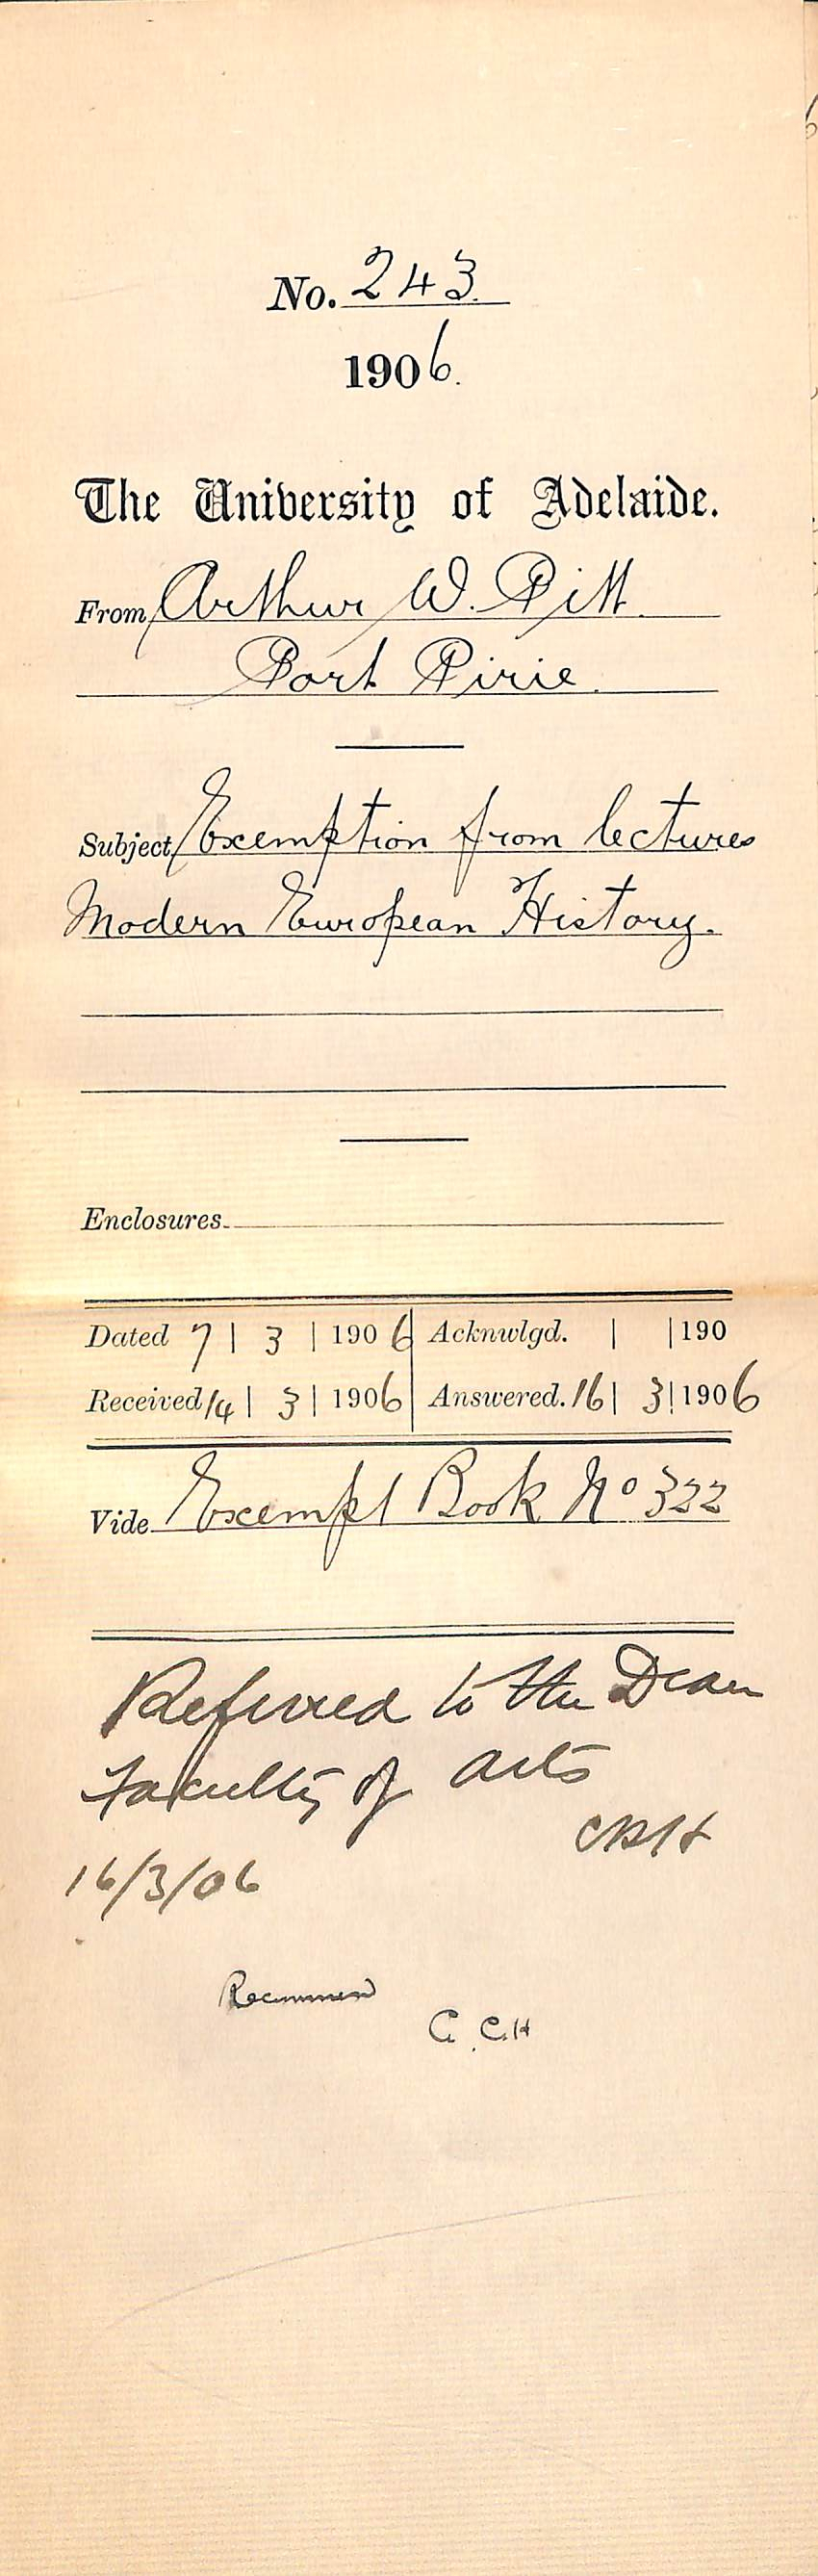 No. 243.
1906.
The University of Adelaide.
From Arthur W. Pitt.
Port Pirie.
Subject Exemption from lectures
Modern European History.
Enclosures
Dated 7 | 3 | 1906 Acknwlgd. | | 190
Received 14 | 3 | 1906 Answered. 16 | 3 | 1906
Vide Exempt Book No 322
Referred to the Dean
Faculty of Arts
16/3/06
Recommen
C. C. H